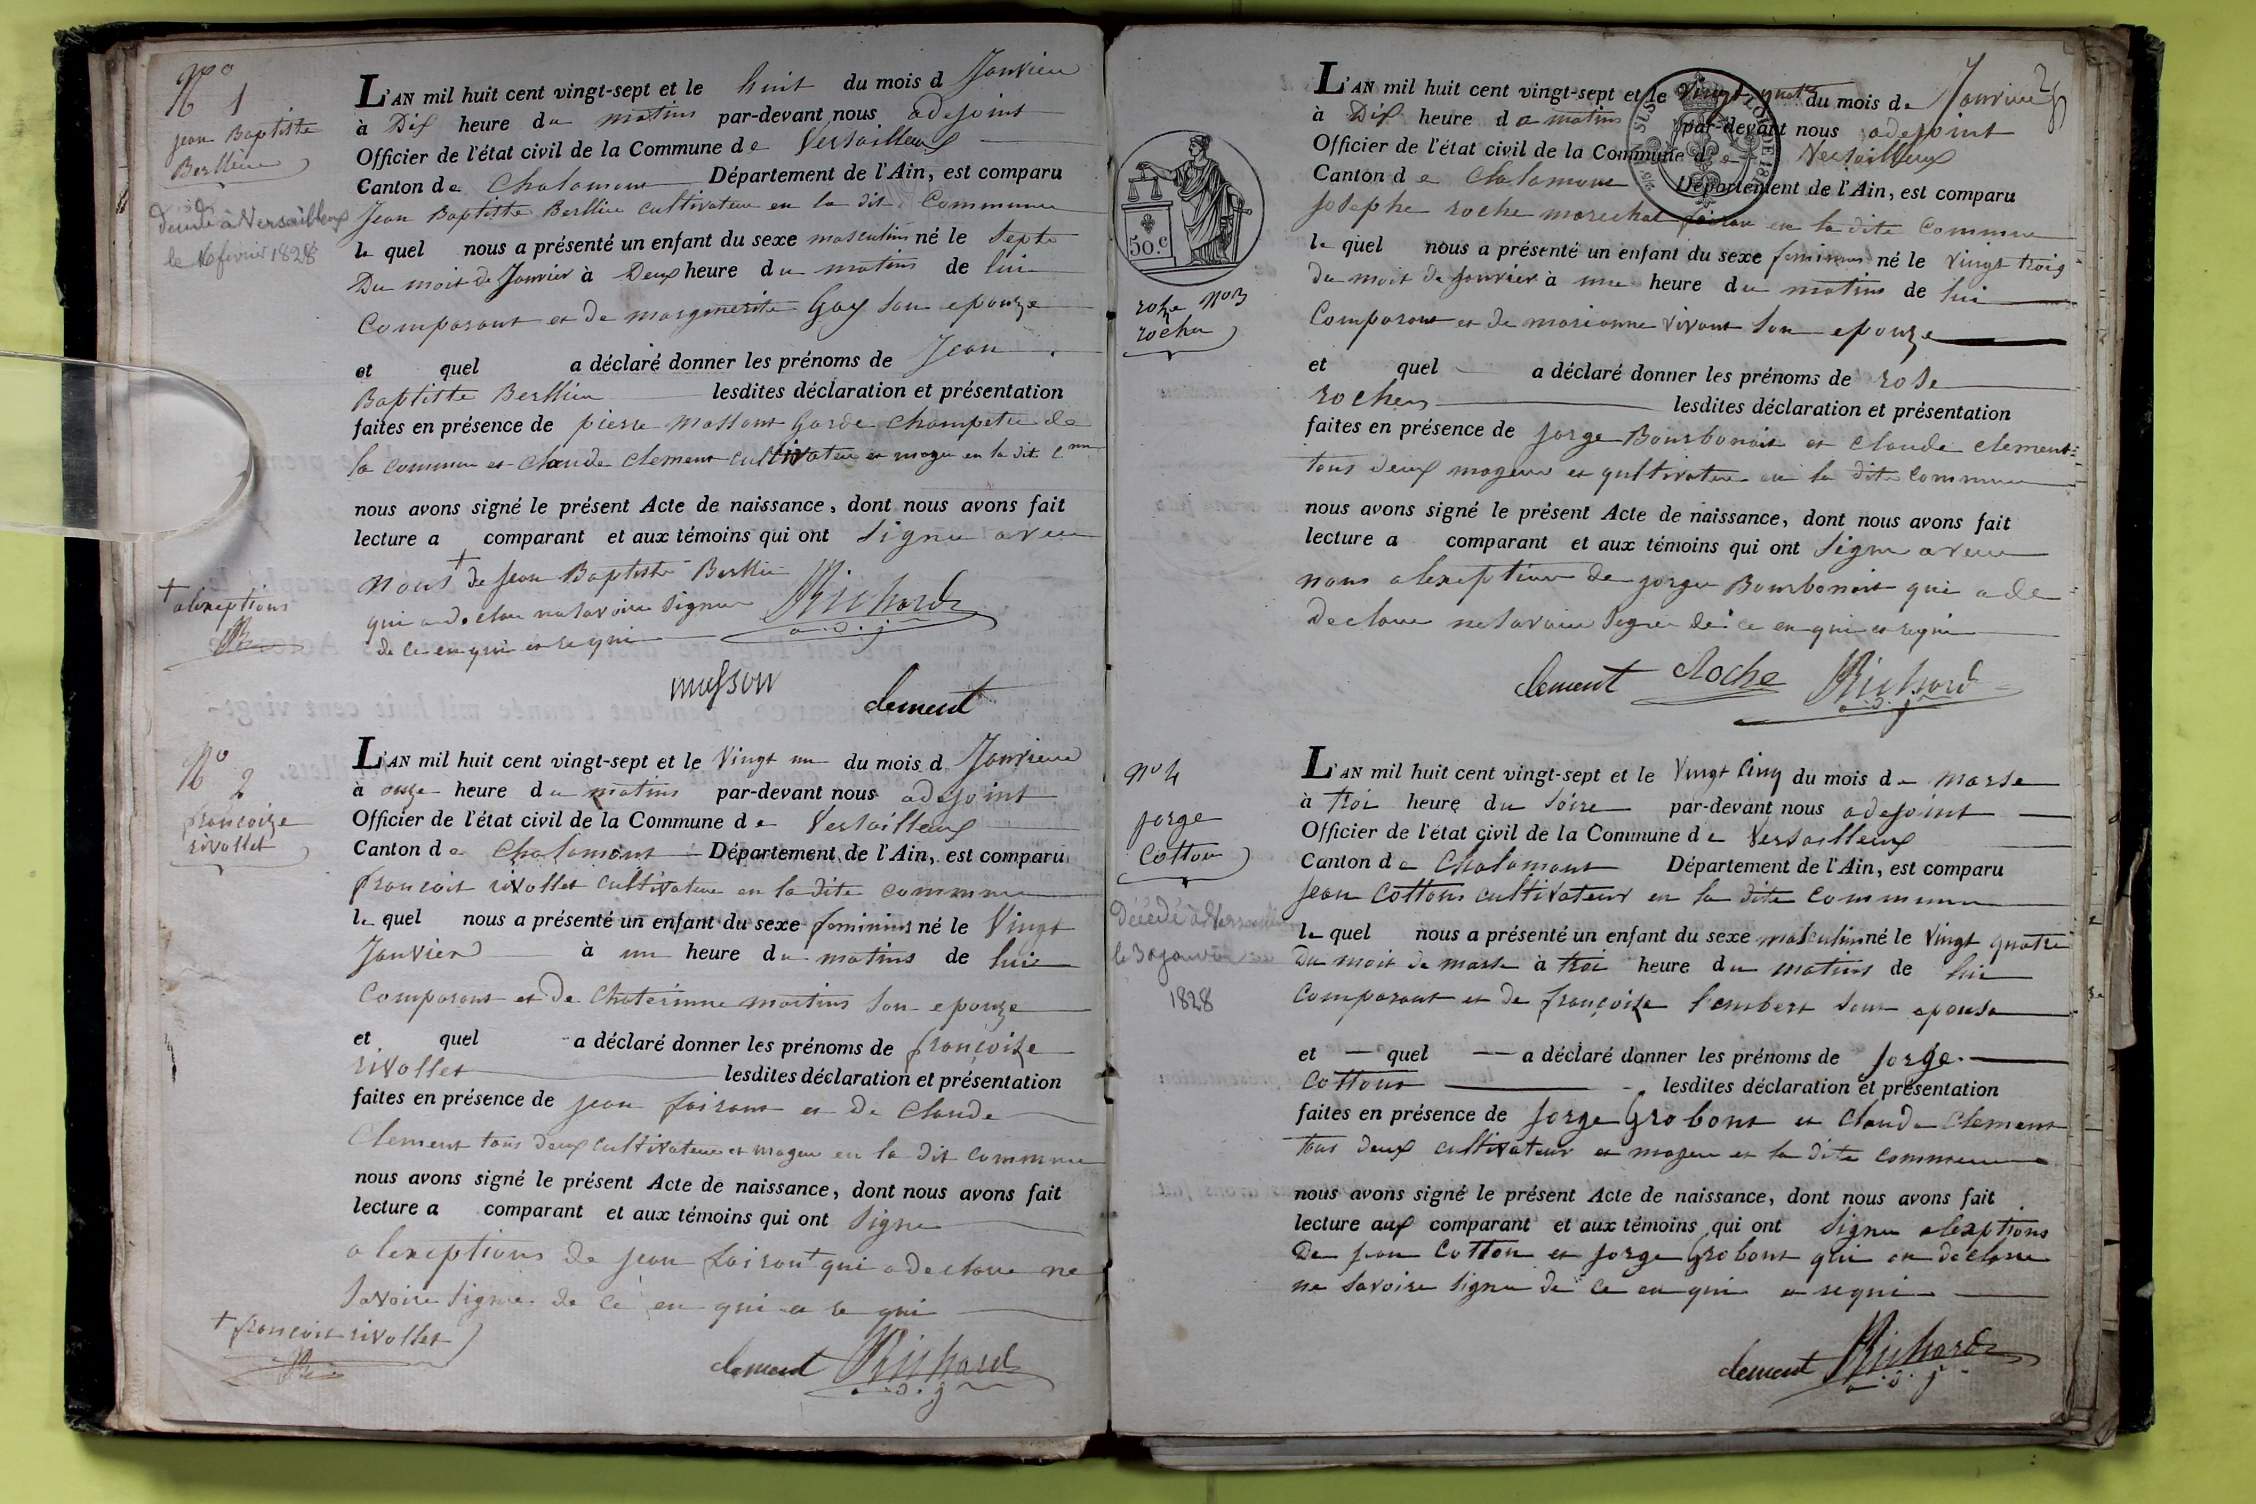 N° 1
jean Baptiste
Berllieu
Décédé à Versailleux
le 16 fevrier 1828
L'AN mil huit cent vingt-sept et le huit du mois d Janvieu
à Dix heure du matins par-devant nous adejoint
Officier de l'état civil de la Commune de Versailleux
Canton de Chalamont Département de l'Ain, est comparu
Jean Baptiste Berllieu cultivateur en la dit Commune
le quel nous a présenté un enfant du sexe masculins né le septe
Du mois de Janvier à Deux heure du matins de lui
Comparant et de marguerite Gay son epouze
et quel a déclaré donner les prénoms de Jean
Baptiste Berllieu lesdites déclaration et présentation
faites en présence de pierre massont garde Champetre de
la commune et claude clement cultivateur et mageur en la dit Cmm
nous avons signé le présent Acte de naissance, dont nous avons fait
lecture a comparant et aux témoins qui ont Signe avec
nous + de jean Baptiste Berllieu
qui a declare ne savoire Signer Richard
de ce enquis et requi a.d.j
+ alexeptions
musson clement
N° 2
françoize
rivollet
L'AN mil huit cent vingt-sept et le Vingt un du mois d Janvieu
à onze heure du matins par-devant nous adejoint
Officier de l'état civil de la Commune de Versailleux
Canton de Chalamont Département de l'Ain, est comparu
francoit rivollet cultivateur en la dite commune
le quel nous a présenté un enfant du sexe feminins né le Vingt
Janvier à un heure du matins de lui
Comparant et de Chaterinne martins son epouze
et quel a déclaré donner les prénoms de françoize
rivollet lesdites déclaration et présentation
faites en présence de jean foirant et de Claude
Clement tous deux cultivateur et mageur en la dit commune
nous avons signé le présent Acte de naissance, dont nous avons fait
lecture a comparant et aux témoins qui ont Signe
alexeptions de jean foirant + qui a declare ne
savoire signe de ce en qui a re qui
+ françoit rivollet
clement Richard
a.d.j
50.c
N° 3
roze
rocher
L'AN mil huit cent vingt-sept et le Vingt quatre du mois de Janvieu
à Dix heure da matins par-devant nous adejoint
Officier de l'état civil de la Commune de Versailleux
Canton de Chalamont Département de l'Ain, est comparu
josephe roche marechal en la dite commune
le quel nous a présenté un enfant du sexe feminins né le Vingt trois
du mois de Janvier à une heure du matins de lui
Comparant et de marianne vivant son epouze
et quel a déclaré donner les prénoms de rose
rochers lesdites déclaration et présentation
faites en présence de jorge Bourbonoit et claude clement
tous deux mageur et qultivateur en la dite commune
nous avons signé le présent Acte de naissance, dont nous avons fait
lecture a comparant et aux témoins qui ont Signe avec
nous alexeptions de jorge Bourbonoit qui a de
declare ne savoire Signe de ce en qui et requi
clement Roche Richard
a.d.j
N° 4
jorge
Cotton
Décédé à Versailleux
le 30 janvier
1828
L'AN mil huit cent vingt-sept et le Vingt Cinq du mois de marse
à troi heure du soire par-devant nous adejoint
Officier de l'état civil de la Commune de Versailleux
Canton de Chalamont Département de l'Ain, est comparu
jean Cottons cultivateur en la dite commune
le quel nous a présenté un enfant du sexe masculins né le Vingt quatre
Du mois de marse à troi heure du matins de lui
Comparant et de françoize lembert son epouse
et quel a déclaré donner les prénoms de jorge
Cottons lesdites déclaration et présentation
faites en présence de jorge Grobont et Claude Clement
tous deux cultivateur et mageur en la dite commune
nous avons signé le présent Acte de naissance, dont nous avons fait
lecture aux comparant et aux témoins qui ont Signe alexptions
De jean Cotton et jorge Grobont qui on declare
ne savoire signe de ce en qui a requi
clement Richard
a.d.j